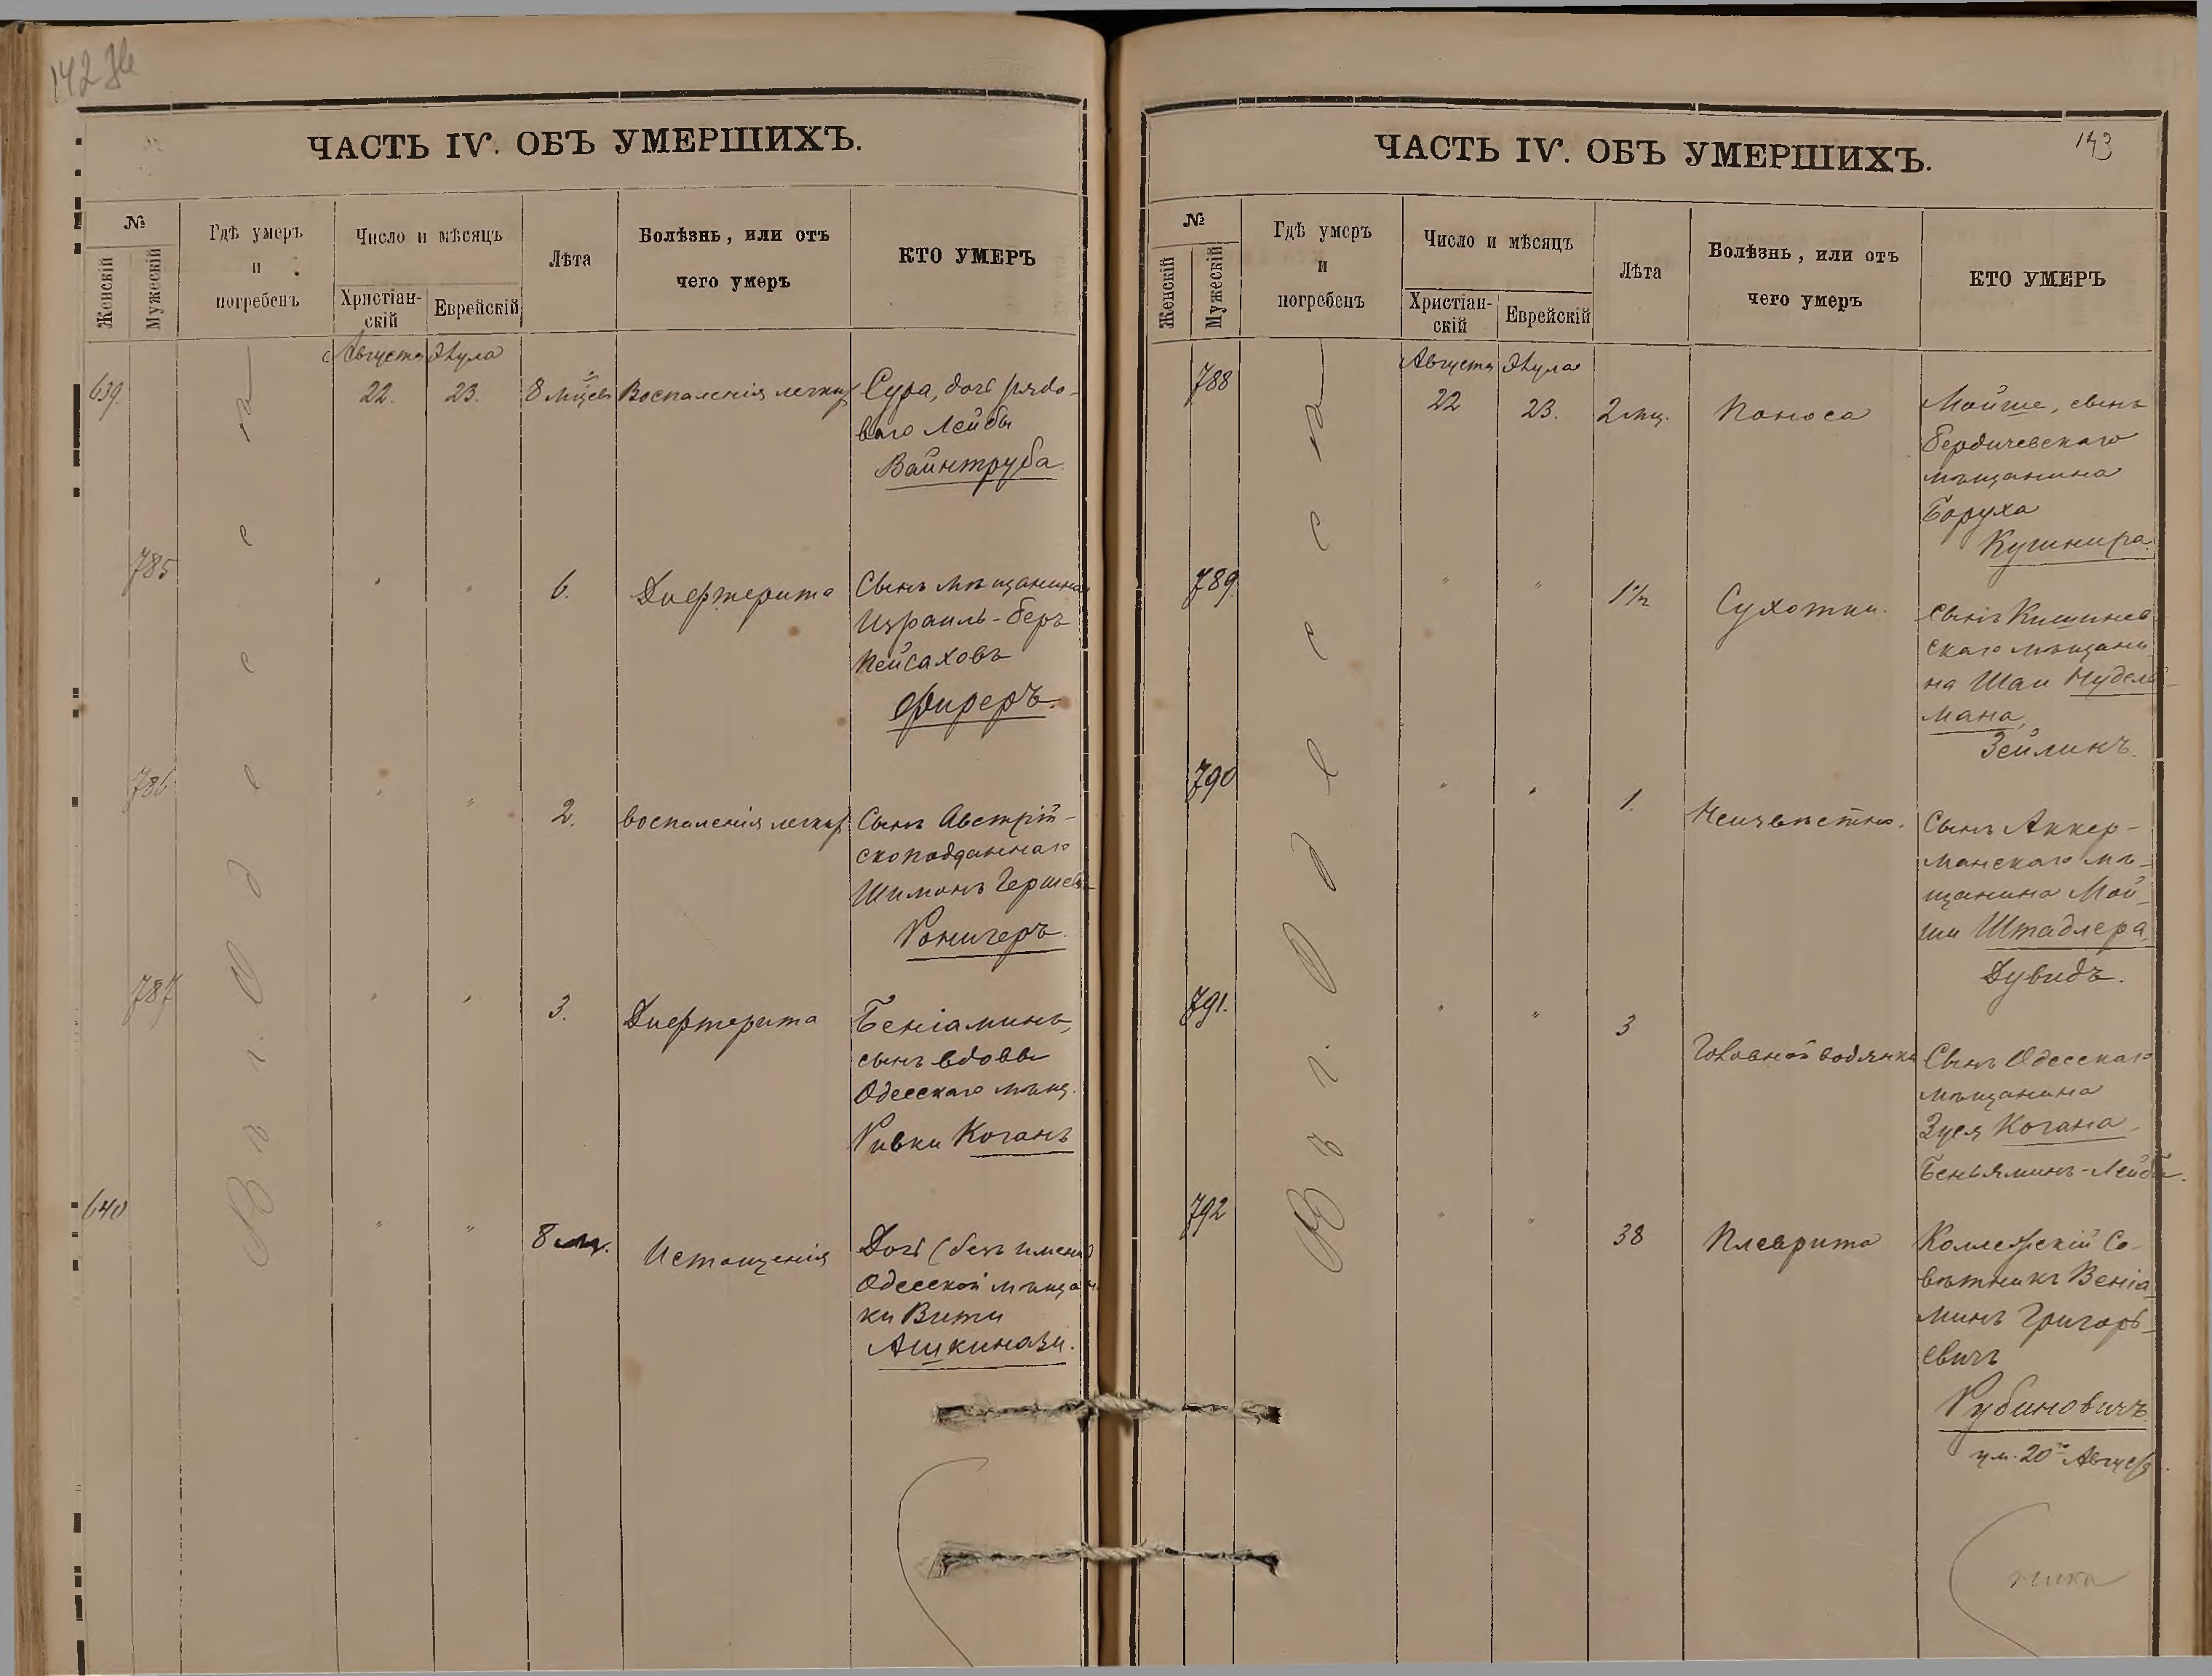 ЧАСТЬ IV. ОБЪ УМЕРШИХЪ.
№
Женскій
Мужескій
Гдѣ умеръ
и
погребенъ
Число и мѣсяцъ
Христіан-
скій
Еврейскій
Лѣта
Болѣзнь, или отъ
чего умеръ
КТО УМЕРЪ
Въ г. Одессѣ
Августа Элула
639. 22. 23. 8 Воспаленія легкихъ Сура, дочь рядо-
ваго Лейбы
Вайнтруба.
785 " " 6. Дифтерита Сынъ мѣщанина
Израиль-беръ
Пейсаховъ
Фиреръ.
786 " " 2. воспаленія легкихъ Сынъ Австрій-
скоподданнаго
Шимонъ Гершевъ
Ронигеръ.
787 " " 3. Дифтерита Беніаминъ,
сынъ вдовы
Одесскаго мѣщ.
Ривки Коганъ
640 " " 8 м. Истощенія Дочь (безъ имени)
Одесской мѣщан
ки Виты
Ашкинази.
ЧАСТЬ IV. ОБЪ УМЕРШИХЪ.
143
№
Женскій
Мужескій
Гдѣ умеръ
и
погребенъ
Число и мѣсяцъ
Христіан-
скій
Еврейскій
Лѣта
Болѣзнь, или отъ
чего умеръ
КТО УМЕРЪ
Въ г. Одессѣ
Августа Элула
788 22 23. 2 мц. Поноса Мойше, сынъ
бердичевскаго
мѣщанина
Боруха
Кушнира.
789. " " 1½ Сухотки. Сынъ Кишинев
скаго мѣщани
на Шаи Нудель-
мана,
Зейлинъ.
790 " " 1. Неизвѣстно. Сынъ Аккер-
манскаго мѣ-
щанина Мой-
ши Штадлера,
Дувидъ.
791. " " 3 Головной водянки Сынъ Одесскаго
мѣщанина
Зуся Когана,
Беньяминъ-Лейба.
792 " " 38 Плеврита Коллежскій Со-
вѣтникъ Веніа
минъ Григорь-
евичъ
Рубиновичъ.
ум. 20го Августа